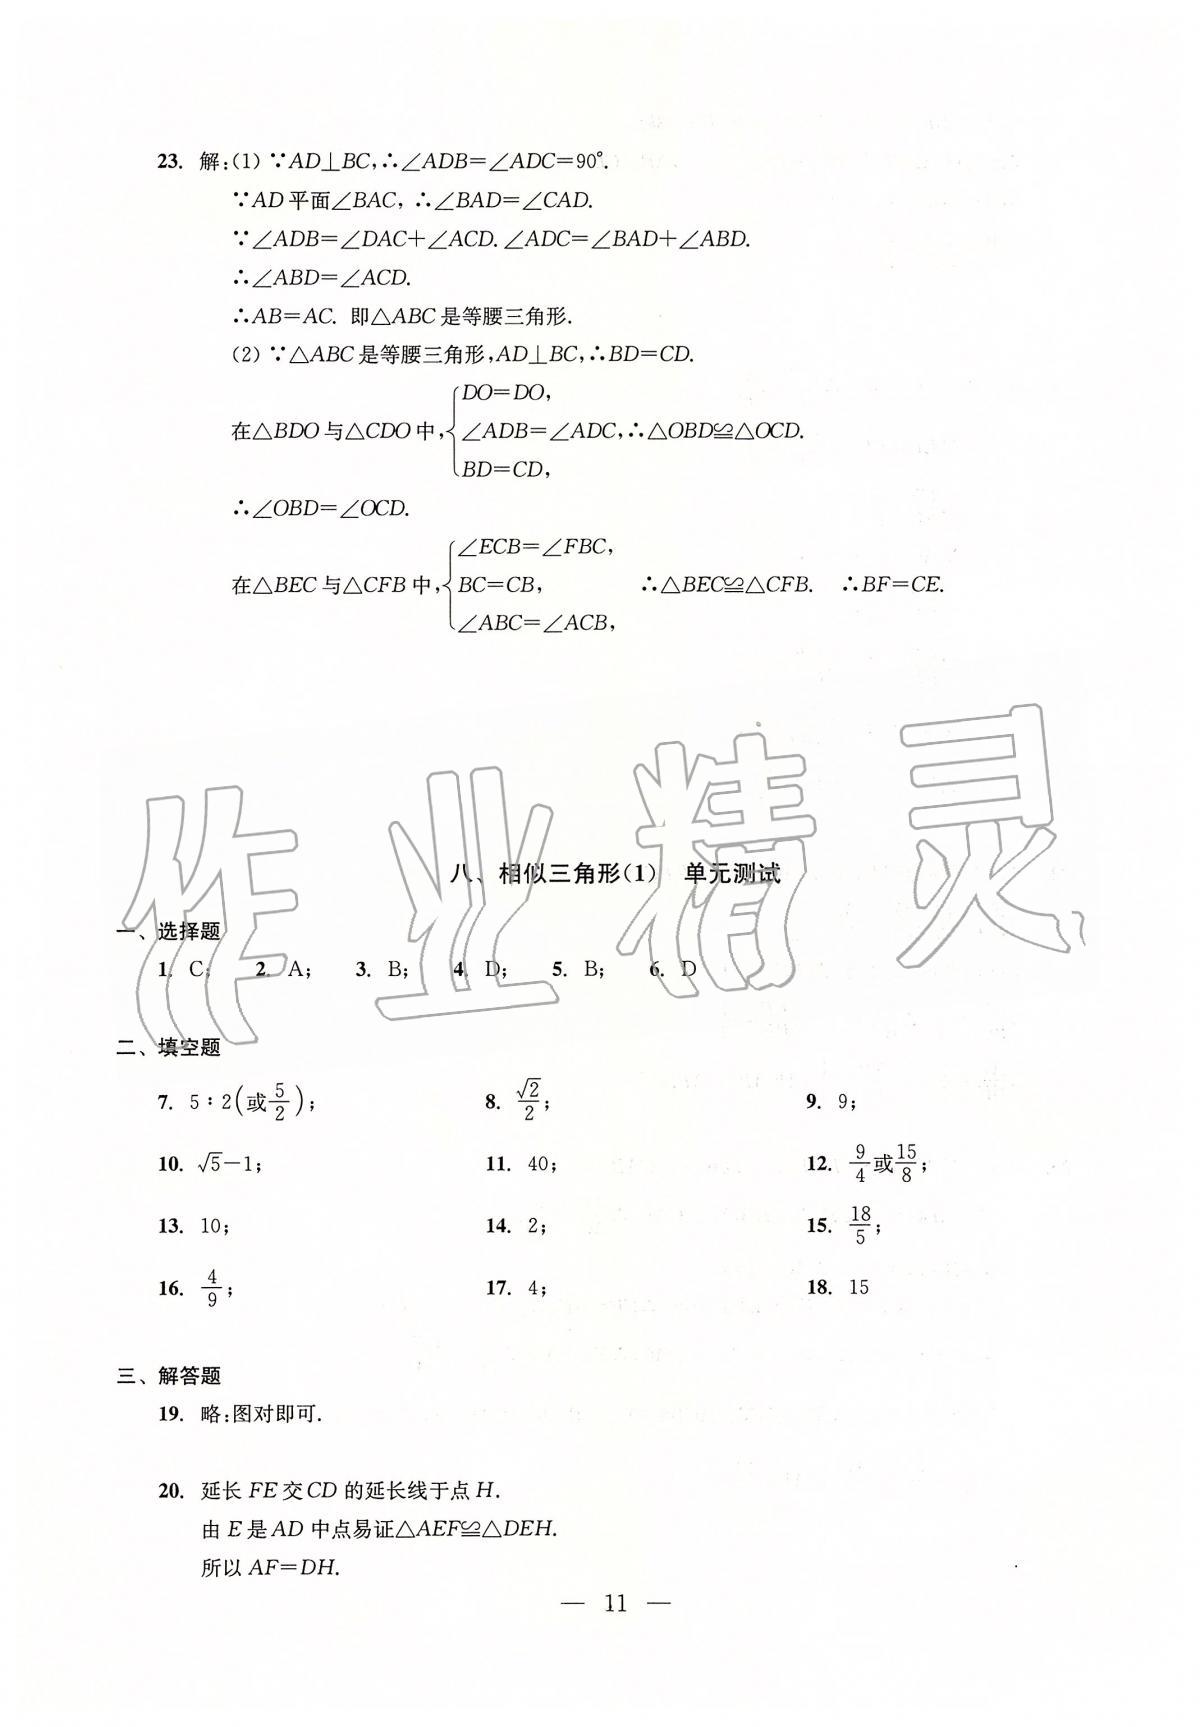 23. 解:(1) ∵AD⊥BC,∴∠ADB=∠ADC=90°.
∵AD平面∠BAC, ∴∠BAD=∠CAD.
∵∠ADB=∠DAC+∠ACD.∠ADC=∠BAD+∠ABD.
∴∠ABD=∠ACD.
∴AB=AC. 即△ABC是等腰三角形.
(2) ∵△ABC是等腰三角形,AD⊥BC,∴BD=CD.
DO=DO,
在△BDO与△CDO中,{∠ADB=∠ADC,∴△OBD≌△OCD.
BD=CD,
∴∠OBD=∠OCD.
∠ECB=∠FBC,
在△BEC与△CFB中,{BC=CB, ∴△BEC≌△CFB. ∴BF=CE.
∠ABC=∠ACB,
作业精灵
八、相似三角形(1) 单元测试
一、选择题
1. C; 2. A; 3. B; 4. D; 5. B; 6. D
二、填空题
7. 5∶2(或5/2); 8. √2/2; 9. 9;
10. √5-1; 11. 40; 12. 9/4或15/8;
13. 10; 14. 2; 15. 18/5;
16. 4/9; 17. 4; 18. 15
三、解答题
19. 略:图对即可.
20. 延长FE交CD的延长线于点H.
由E是AD中点易证△AEF≌△DEH.
所以AF=DH.
— 11 —